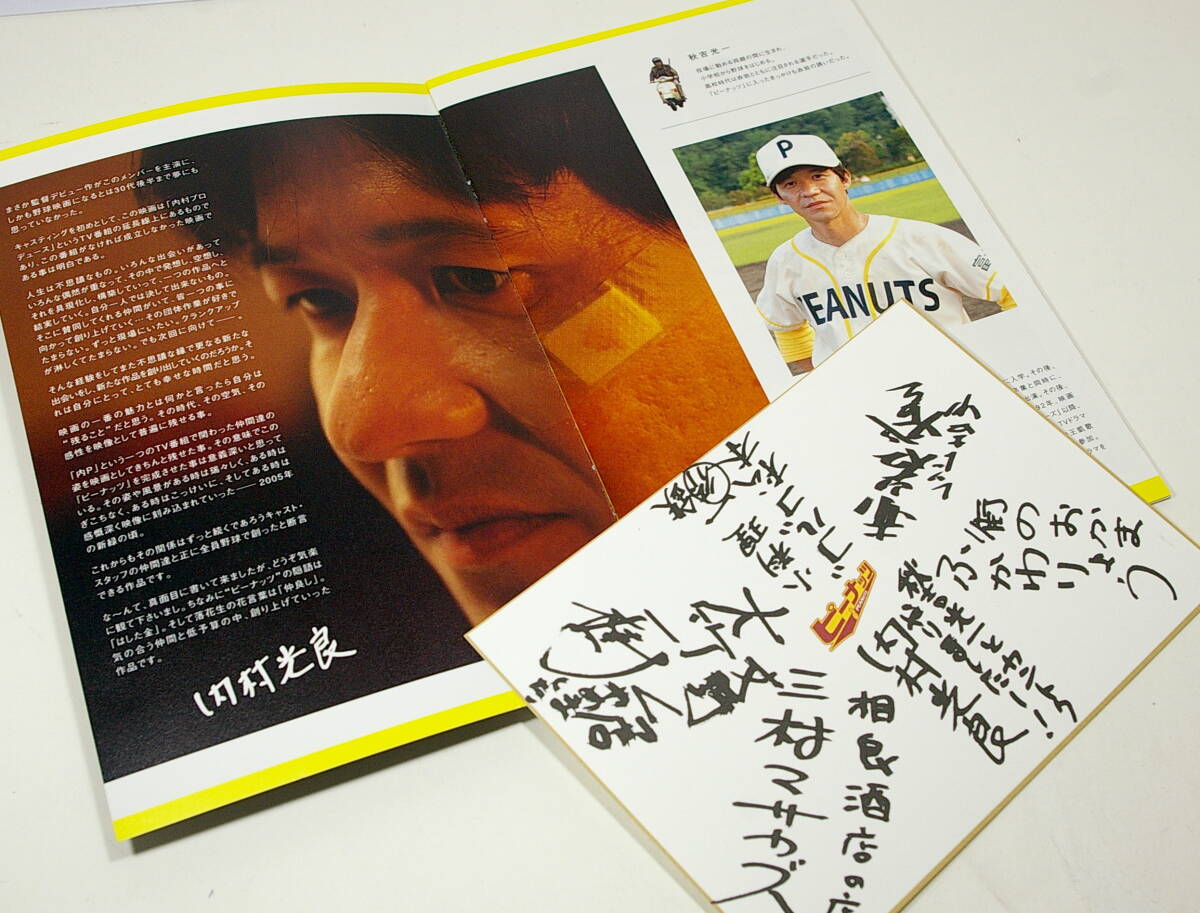 まさか監督デビュー作がこのメンバーを主演に、
しかも野球映画になるとは30代後半まで夢にも
思っていなかった。
キャスティングを初めとして、この映画は「内村プロ
デュース」というTV番組の延長線上にあるもので
あり、この番組がなければ成立しなかった映画で
ある事は明白である。
人生は不思議なもの。いろんな出会いがあって
いろんな偶然が重なって、その中で発想し、空想し、
それを具現化し、構築していって、一つの作品へと
結実していく。自分一人では決して出来ないもの。
そこに賛同してくれる仲間がいて、皆一つの事に
向かって創り上げていく…その団体作業が好きで
たまらない。ずっと現場にいたい。クランクアップ
が淋しくてたまらない。でも次回に向けて——。
そんな経験をしてまた不思議な縁で更なる新たな
出会いをし、新たな作品を創り出していくのだろうか。そ
れは自分にとって、とても幸せな時間だと思う。
映画の一番の魅力とは何かと言ったら自分は
“残ること”だと思う。その時代、その空気、その
感性を映像として普遍に残せる事。
「内P」という一つのTV番組で関わった仲間達の
姿を映画としてきちんと残せた事。その意味でこの
「ピーナッツ」を完成させた事は意義深いと思って
いる。その姿や風景がある時は瑞々しく、ある時は
ぎこちなく、ある時はこっけいに、そしてある時は
感慨深く映像に刻み込まれていった——2005年
の新緑の頃。
これからもその関係はずっと続くであろうキャスト・
スタッフの仲間達と正に全員野球で創ったと断言
できる作品です。
な〜んて、真面目に書いて来ましたが、どうぞ気楽
に観て下さいまし。ちなみに“ピーナッツ”の隠語は
「はした金」。そして落花生の花言葉は「仲良し」。
気の合う仲間と低予算の中、創り上げていった
作品です。
内村光良
秋吉光一
役場に勤める両親の間に生まれ、
小学校から野球をはじめる。
高校時代は赤岩とともに注目される選手だった。
「ピーナッツ」に入ったきっかけも赤岩の誘いだった。
P
PEANUTS
に入学。その後、
業と同時に、
出演。その後、
92年、映画
ーズ」以降、
TVドラマ
参加。
ピーナッツ
街のおかま
ふかわりょう
内村光良
大竹
三村
川村エキサベ
相良酒店の